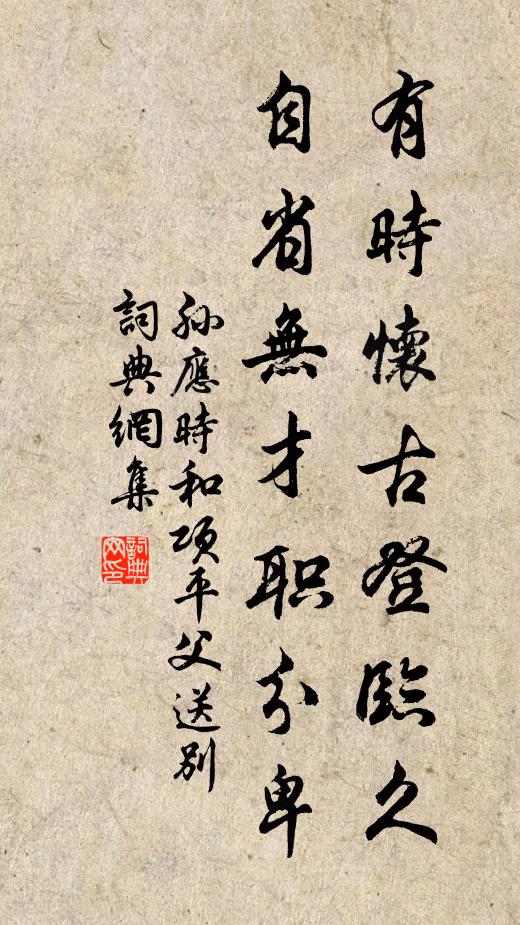 有時懷古登臨久
自省無才職分卑
孫應時和項平父送別
詞典網集
詞典
网印